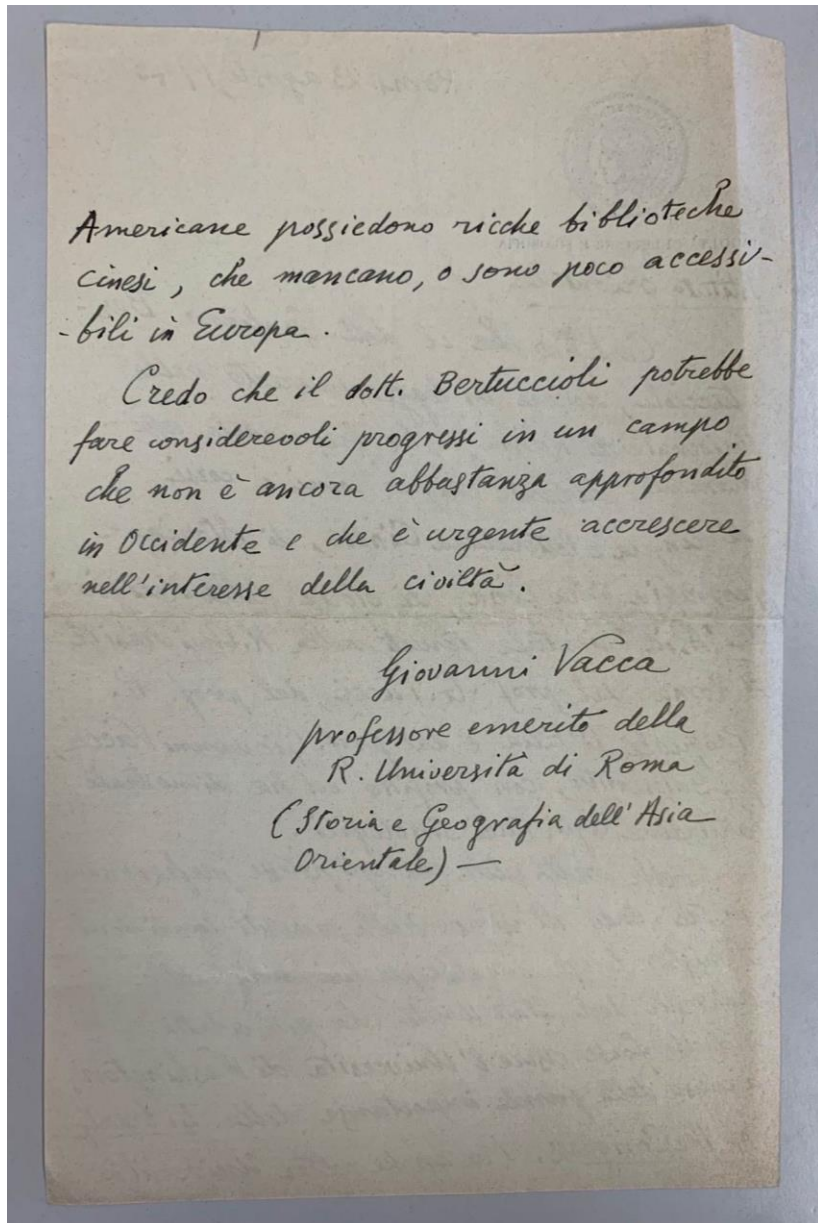 Americane possiedono ricche biblioteche
cinesi, che mancano, o sono poco accessi-
-bili in Europa.
Credo che il dott. Bertuccioli potrebbe
fare considerevoli progressi in un campo
che non è ancora abbastanza approfondito
in Occidente e che è urgente accrescere
nell'interesse della civiltà.
Giovanni Vacca
professore emerito della
R. Università di Roma
(Storia e Geografia dell'Asia
Orientale) —